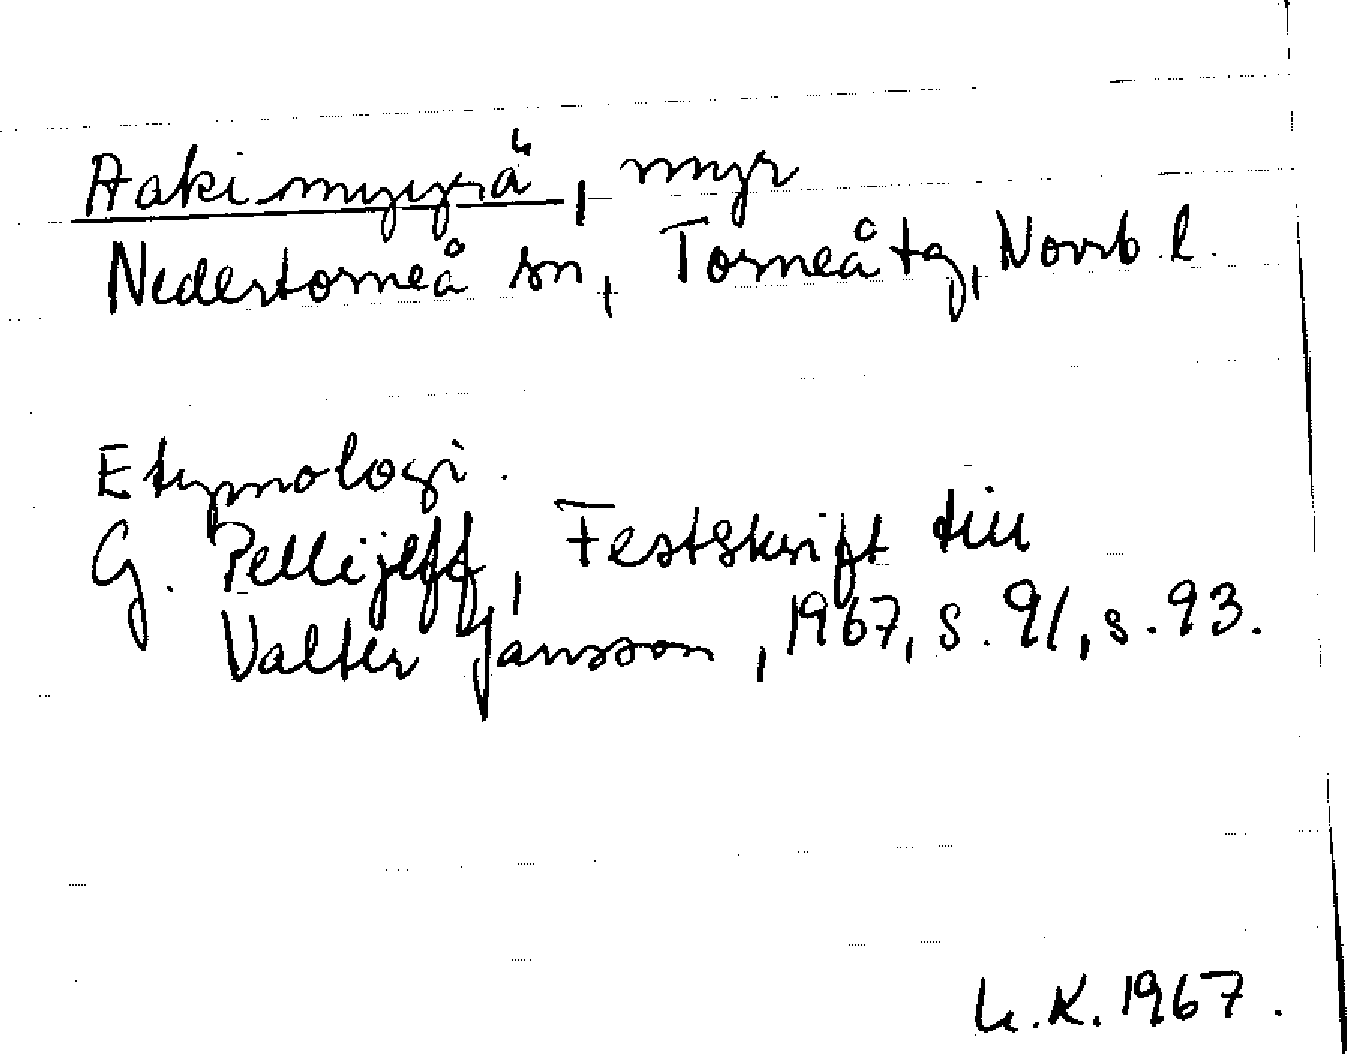 Aakimyyrä, myr
Nedertorneå sn, Torneå tg, Norrb l.
Etymologi.
G. Pellijeff, Festskrift till
Valter Jansson, 1967, s. 91, s. 93.
K. 1967.